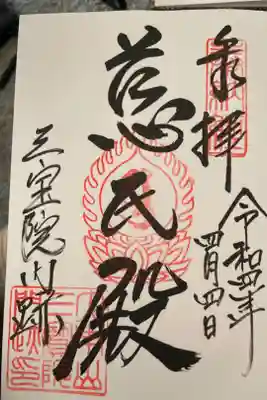 奉拝
令和四年
四月四日
慈氏殿
三宝院門跡